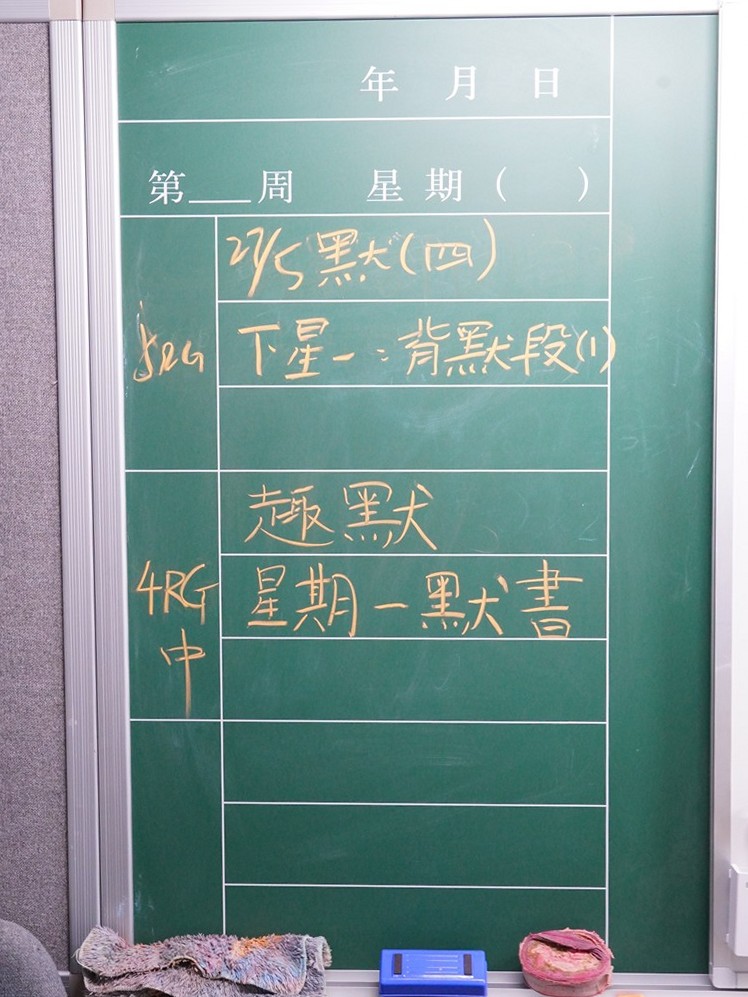 年 月 日
第___周 星期( )
27/5 默(四)
5RG 下星一:背默段(1)
趣默
4RG 星期一默書
中